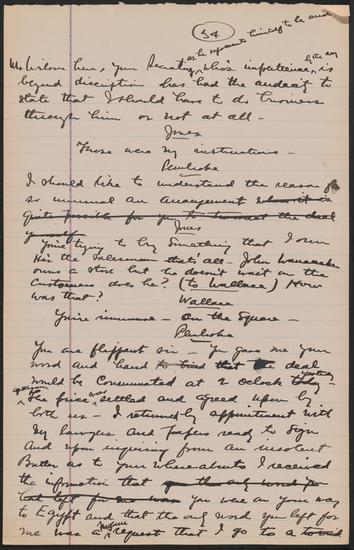 34
as he represents himself to be and
Mr Wilson here, your Secretary, who's impertinence, by the way is
beyond discription has had the audacity to
state that I should have to do business
through him or not at all —
Jones
Those were my instructions —
Pembroke
I should like to understand the reason of
so unusual an arrangement when it is
quite possible for you to transact the deal
yourself
Jones
You're trying to buy something that I own
He's the salesman that's all — John Wanamaker
owns a store but he doesn't wait on the
Customers does he? (to Wallace) How
was that?
Wallace
You're immense — On the Square —
Pembroke
You are flippant sir — You gave me your
word and hand to bind that the deal
would be Consummated at 2 o'clock today — yesterday
The price was settled and agreed upon by
both us — I returned by appointment with
my lawyers and papers ready to sign
and upon inquiring from an insolent
Butler as to your whereabouts I received
the information that you the only word you
had left for me was you were on your way
to Egypt and that the only word you left for
me was a request that I go to a